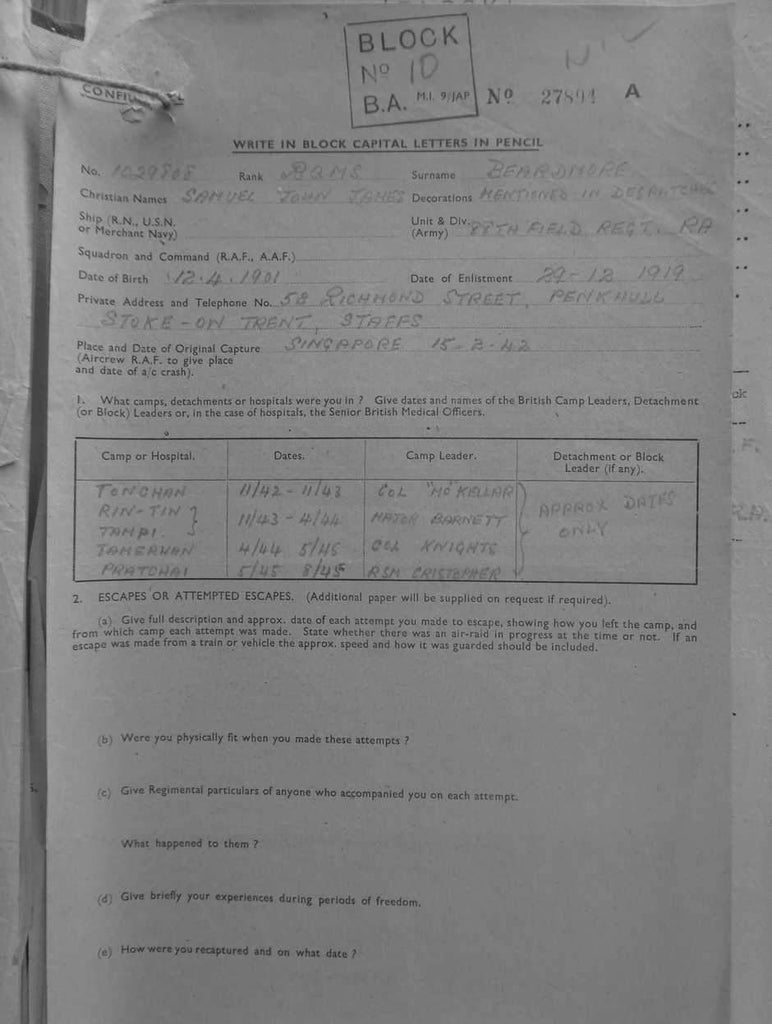 BLOCK
Nº 10
B.A. M.I. 9/JAP
Nº 27894 A
CONFI
WRITE IN BLOCK CAPITAL LETTERS IN PENCIL
No. 1029808 Rank BQMS Surname BEARDMORE
Christian Names SAMUEL JOHN JAMES Decorations MENTIONED IN DESPATCHES
Ship (R.N., U.S.N. or Merchant Navy)
Unit & Div. (Army) 88TH FIELD REGT. RA
Squadron and Command (R.A.F., A.A.F.)
Date of Birth 12.4.1901 Date of Enlistment 29-12 1919
Private Address and Telephone No. 58 RICHMOND STREET, PENKHULL
STOKE-ON TRENT, STAFFS
Place and Date of Original Capture SINGAPORE 15-2-42
(Aircrew R.A.F. to give place
and date of a/c crash).
1. What camps, detachments or hospitals were you in ? Give dates and names of the British Camp Leaders, Detachment
(or Block) Leaders or, in the case of hospitals, the Senior British Medical Officers.
Camp or Hospital. Dates. Camp Leader. Detachment or Block Leader (if any).
TONCHAN 11/42 - 11/43 COL "MC" KELLAR APPROX DATES ONLY
RIN-TIN
TAMPI. 11/43 - 4/44 MAJOR BARNETT
TAMERWAN 4/44 5/45 COL KNIGHTS
PRATCHAI 5/45 8/45 RSM CRISTOPHER
2. ESCAPES OR ATTEMPTED ESCAPES. (Additional paper will be supplied on request if required).
(a) Give full description and approx. date of each attempt you made to escape, showing how you left the camp, and
from which camp each attempt was made. State whether there was an air-raid in progress at the time or not. If an
escape was made from a train or vehicle the approx. speed and how it was guarded should be included.
(b) Were you physically fit when you made these attempts ?
(c) Give Regimental particulars of anyone who accompanied you on each attempt.
What happened to them ?
(d) Give briefly your experiences during periods of freedom.
(e) How were you recaptured and on what date ?